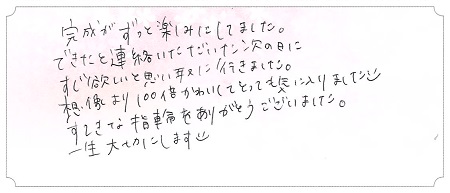 完成がずっと楽しみにしてました。
できたと連絡いただいた次の日に
すぐ欲しいと思い取りに行きました。
想像より100倍かわいくてとっても気に入りました
すてきな指輪をありがとうございました。
一生大切にします